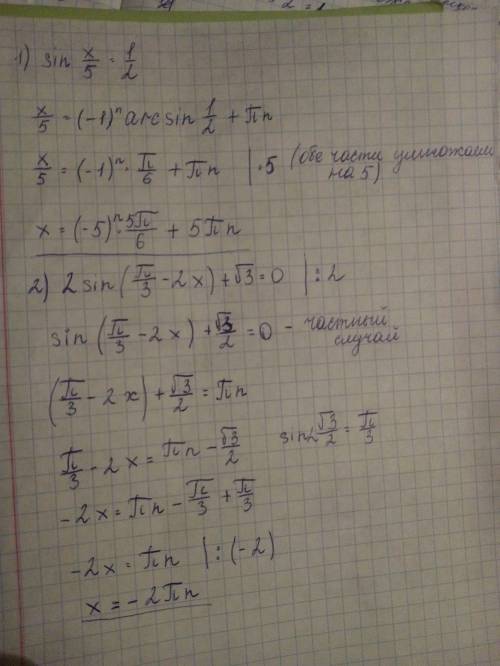 1) sin x/5 = 1/2
x/5 = (-1)ⁿ arcsin 1/2 + πn
x/5 = (-1)ⁿ · π/6 + πn | · 5 (обе части умножаем на 5)
x = (-5)ⁿ · 5π/6 + 5πn
2) 2 sin(π/3 - 2x) + √3 = 0 | : 2
sin(π/3 - 2x) + √3/2 = 0 - частный случай
(π/3 - 2x) + √3/2 = πn
π/3 - 2x = πn - √3/2 sin∠ √3/2 = π/3
-2x = πn - π/3 + π/3
-2x = πn | : (-2)
x = -2πn